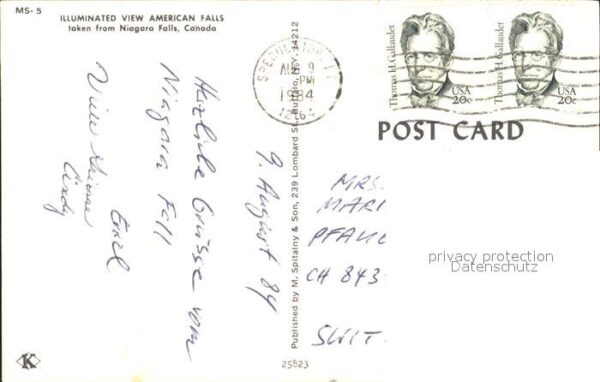 MS-5
ILLUMINATED VIEW AMERICAN FALLS
taken from Niagara Falls, Canada
9. August 84
Herzliche Grüsse vom
Niagara Fall
Emil
Cindy
Published by M. Spitalny & Son, 239 Lombard St., Buffalo, N.Y. 14212
25823
K
AUG 9
PM
1984
Thomas H. Gallaudet
USA
20c
Thomas H. Gallaudet
USA
20c
POST CARD
MRS.
MARI
PFAU
CH 843
SWIT
privacy protection
Datenschutz